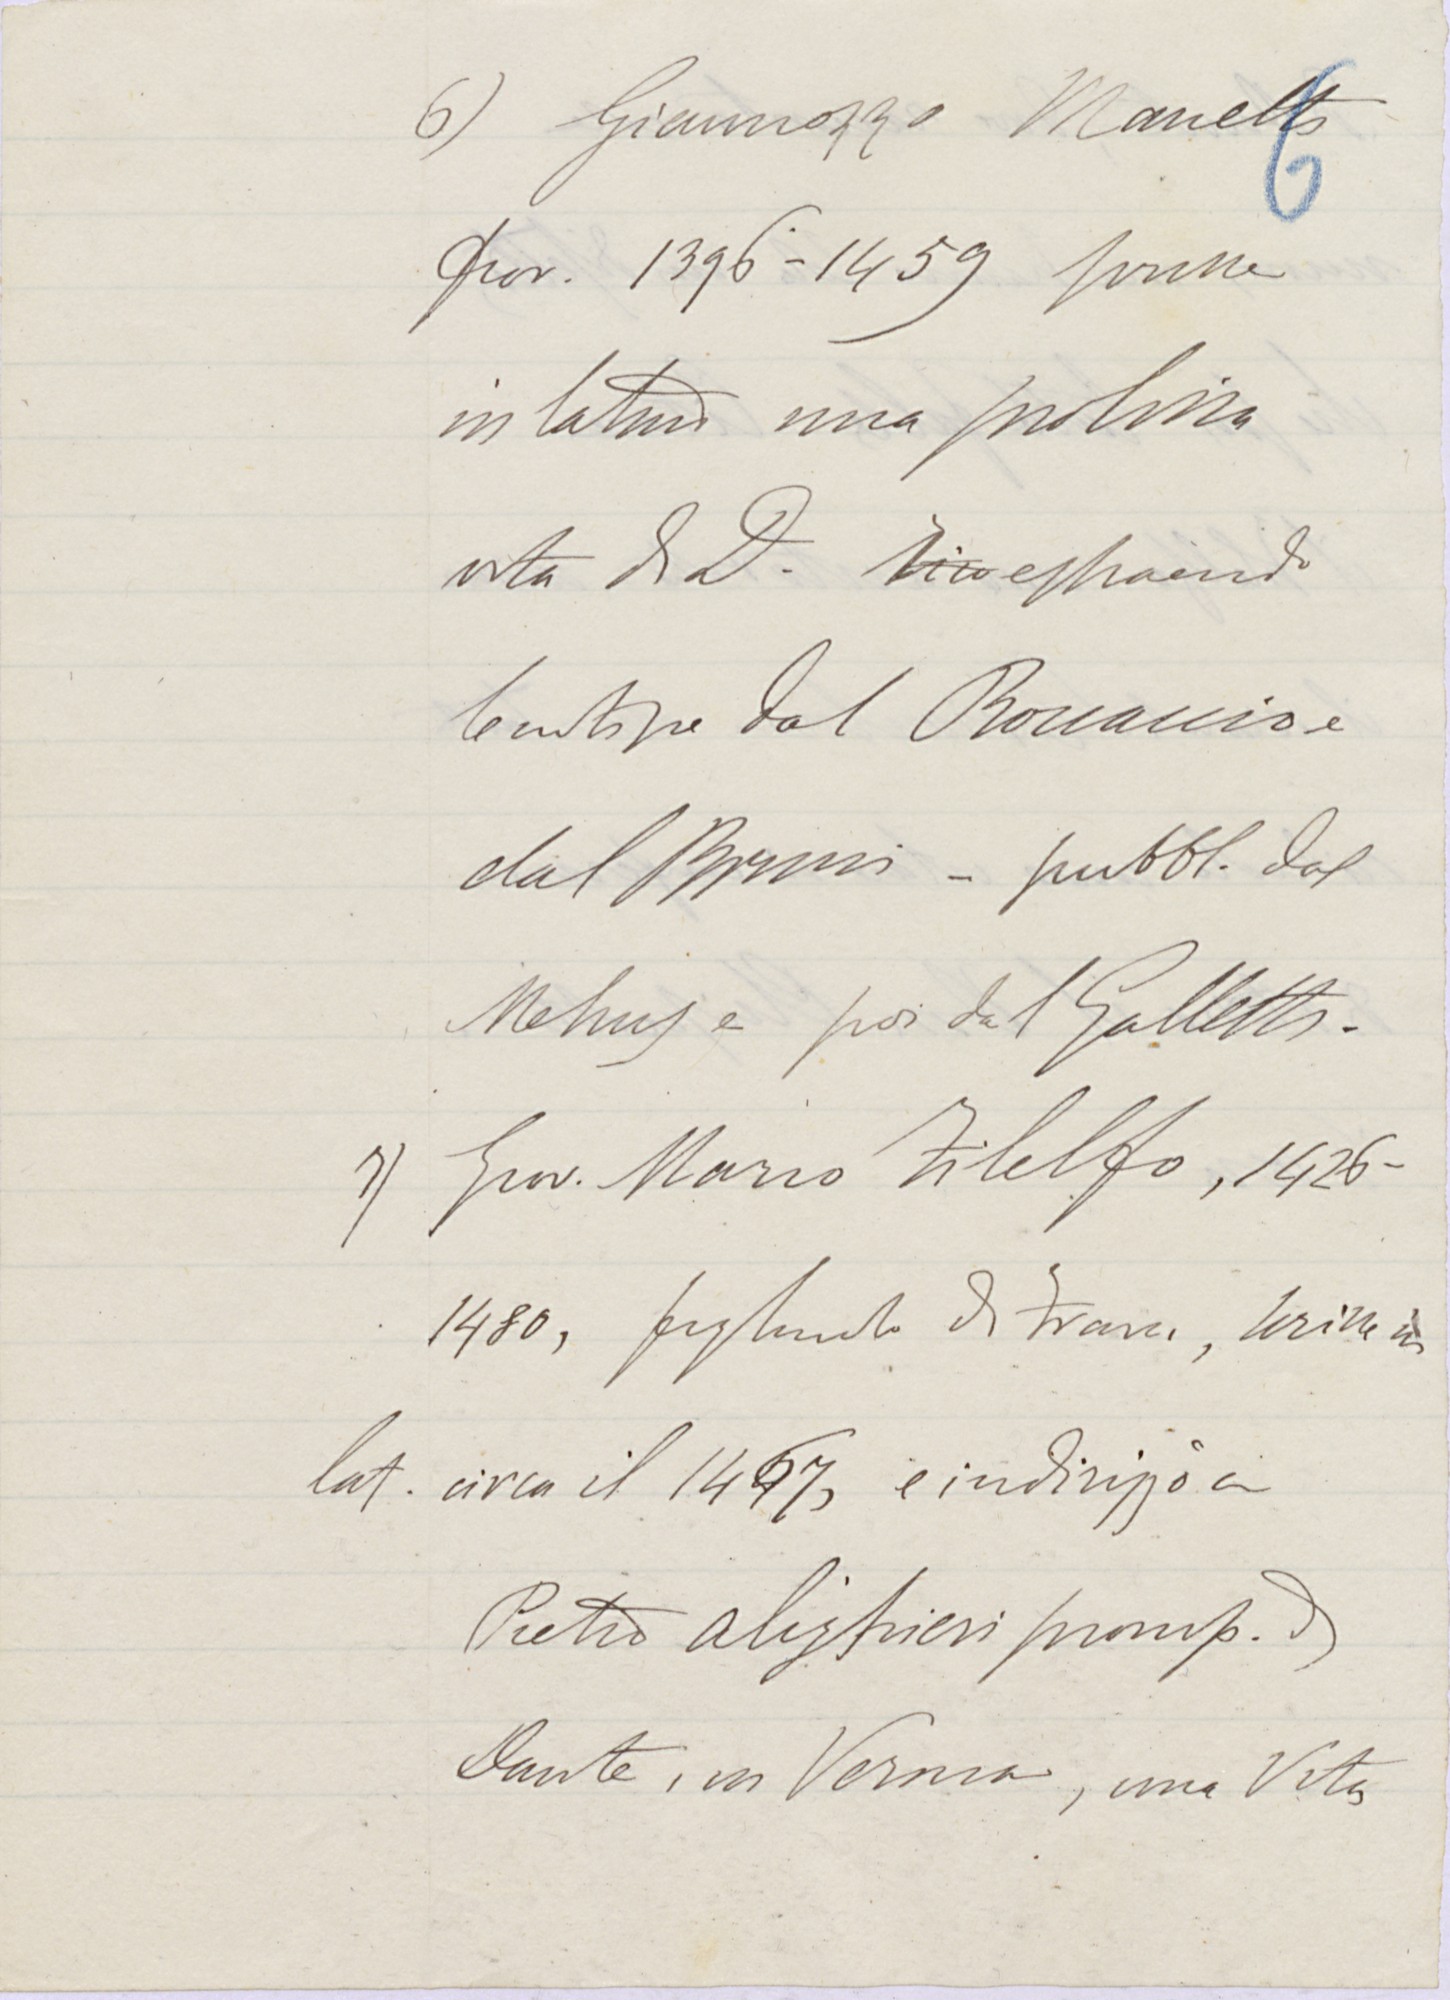 6) Giannozzo Manetti
6
fior. 1396-1459 scrisse
in latino una prolissa
vita di D. estraendo
dal Boccaccio e
dal Bruni - pubbl. dal
Mehus e poi dal Galletti.
7) Giov. Mario Filelfo, 1426-
1480, figliuolo di Franc., scrisse in
lat. circa il 1467, e indirizzò a
Pietro Alighieri pronip. di
Dante, in Verona, una Vita